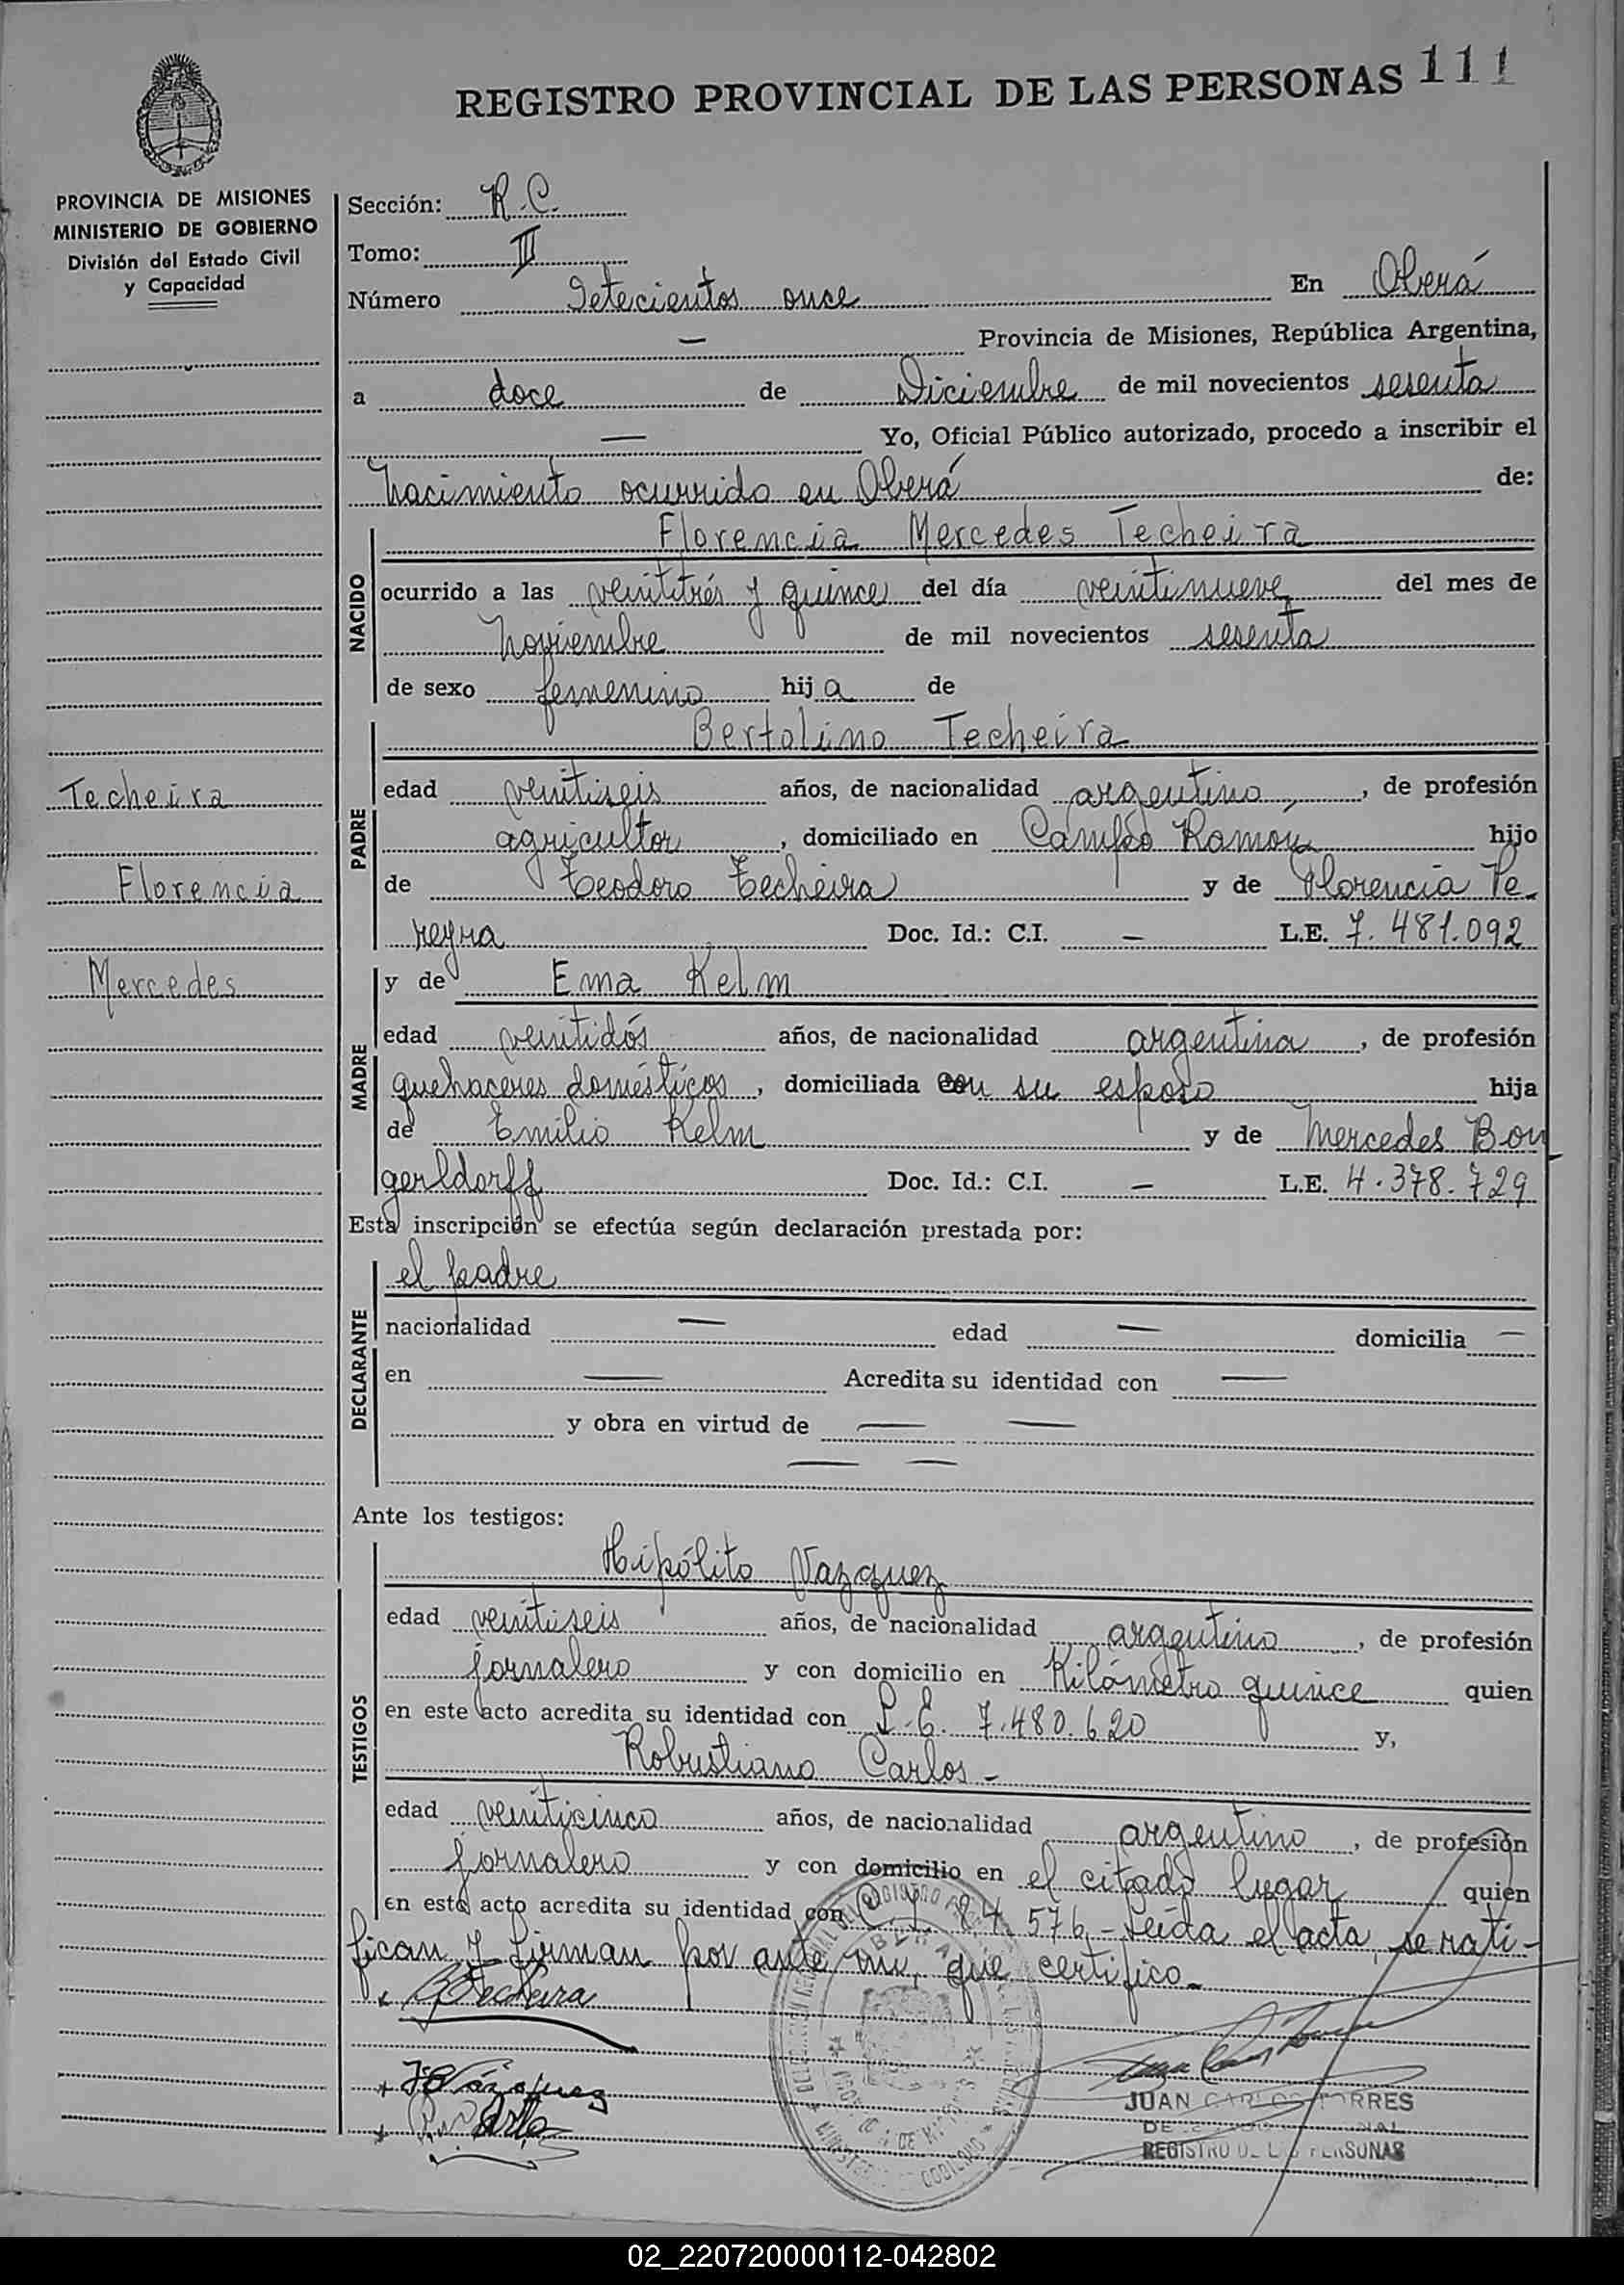 REGISTRO PROVINCIAL DE LAS PERSONAS 111
PROVINCIA DE MISIONES
MINISTERIO DE GOBIERNO
División del Estado Civil
y Capacidad
Techeira
Florencia
Mercedes
Sección: R.C.
Tomo: III
Número Setecientos once En Oberá
— Provincia de Misiones, República Argentina,
a doce de Diciembre de mil novecientos sesenta
— Yo, Oficial Público autorizado, procedo a inscribir el
nacimiento ocurrido en Oberá de:
NACIDO
Florencia Mercedes Techeira
ocurrido a las veintitrés y quince del día veintinueve del mes de
Noviembre de mil novecientos sesenta
de sexo femenino hija de
PADRE
Bertolino Techeira
edad veintiseis años, de nacionalidad argentino, de profesión
agricultor, domiciliado en Campo Ramón hijo
de Teodoro Techeira y de Florencia Pe-
reyra Doc. Id.: C.I. — L.E. 7.481.092
MADRE
y de Ema Kelm
edad veintidós años, de nacionalidad argentina, de profesión
quehaceres domésticos, domiciliada con su esposo hija
de Emilio Kelm y de Mercedes Bon
genldorff Doc. Id.: C.I. — L.E. 4.378.729
Esta inscripción se efectúa según declaración prestada por:
DECLARANTE
el padre
nacionalidad — edad — domicilia —
en — Acredita su identidad con —
y obra en virtud de — —
— —
Ante los testigos:
TESTIGOS
Hipólito Vazquez
edad veintiseis años, de nacionalidad argentino, de profesión
jornalero y con domicilio en Kilómetro quince quien
en este acto acredita su identidad con L.E. 7.480.620 y,
Robustiano Carlos-
edad veinticinco años, de nacionalidad argentino, de profesión
jornalero y con domicilio en el citado lugar quien
en este acto acredita su identidad con 84 576- Leída el acta, se rati-
fican y firman por ante mi, que certifico-
Techeira
Vázquez
JUAN CARLOS TORRES
REGISTRO DE LAS PERSONAS
02_220720000112-042802